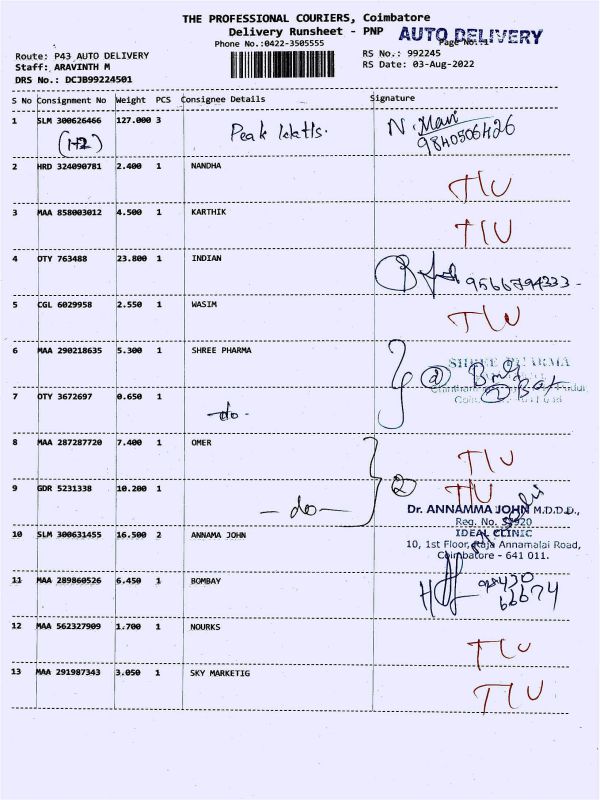 THE PROFESSIONAL COURIERS, Coimbatore
Delivery Runsheet - PNP
AUTO DELIVERY
Phone No.:0422-3505555
Page No.:1
Route: P43 AUTO DELIVERY
RS No.: 992245
Staff: ARAVINTH M
RS Date: 03-Aug-2022
DRS No.: DCJB99224501
S No Consignment No Weight PCS Consignee Details Signature
1 SLM 300626466 127.000 3 Peak
N. Mani
9840506426
2 HRD 324090781 2.400 1 NANDHA
TLU
3 MAA 858003012 4.500 1 KARTHIK
TLU
4 OTY 763488 23.800 1 INDIAN
9566794333-
5 CGL 6029958 2.550 1 WASIM
TLU
6 MAA 290218635 5.300 1 SHREE PHARMA
SHREE PHARMA
7 OTY 3672697 0.650 1 -do-
8 MAA 287287720 7.400 1 OMER
TLU
9 GDR 5231338 10.200 1 -do- 2
TLU
Dr. ANNAMMA JOHN M.D.D.D.,
Reg. No.
10 SLM 300631455 16.500 2 ANNAMA JOHN
IDEAL CLINIC
10, 1st Floor, Raja Annamalai Road,
Coimbatore - 641 011.
11 MAA 289860526 6.450 1 BOMBAY
66674
12 MAA 562327909 1.700 1 NOURKS
TLU
13 MAA 291987343 3.050 1 SKY MARKETIG
TLU